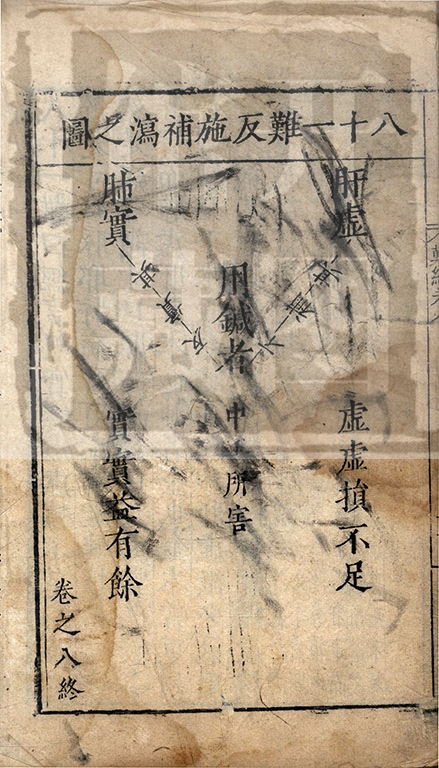 八十一難反施補瀉之圖
肝虛
虛虛損不足
用鍼者
中工所害
肺實
實實益有餘
卷之八終